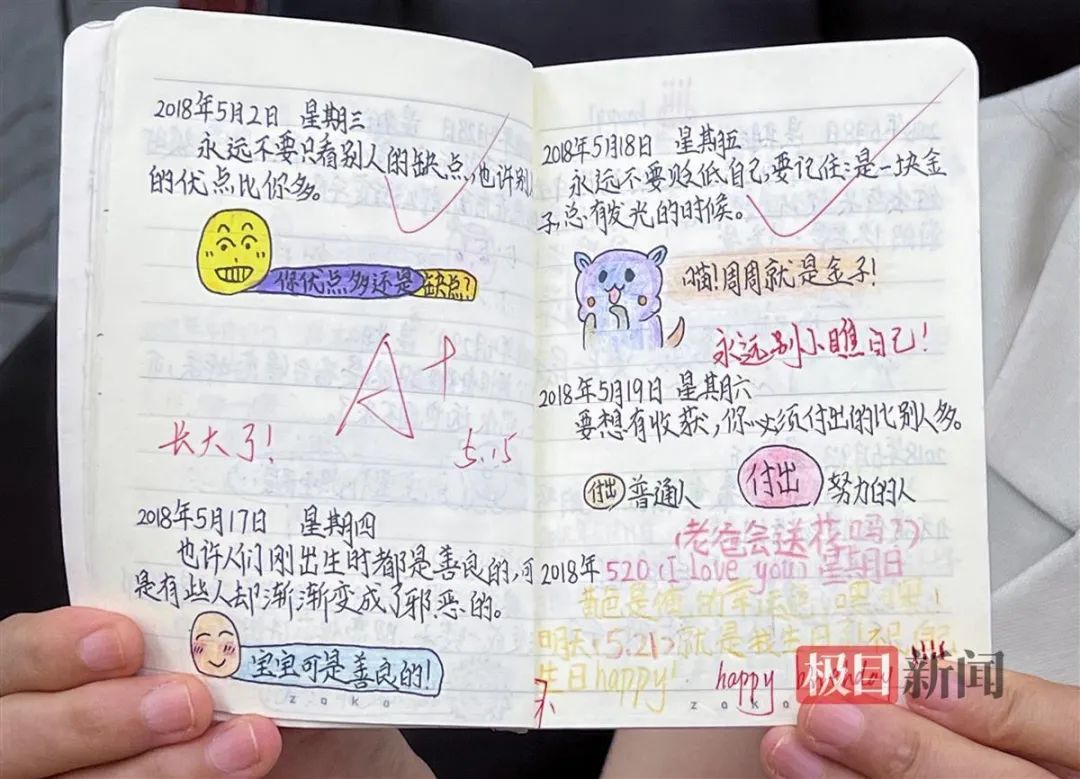 2018年5月2日 星期三
永远不要只看别人的缺点,也许别人
的优点比你多。
你优点多还是缺点?
A+
长大了!
5.15
2018年5月17日 星期四
也许人们刚出生时都是善良的,可
是有些人却渐渐变成了邪恶的。
宝宝可是善良的!
zoko
2018年5月18日 星期五
永远不要贬低自己,要记住:是一块金
子,总有发光的时候。
喵!周周就是金子!
永远别小瞧自己!
2018年5月19日 星期六
要想有收获,你必须付出的比别人多。
付出 普通人 付出 努力的人
(老爸会送花吗?)
2018年520(I love you)星期日
黄色是俺的幸运色,嘿嘿!
明天(5.21)就是我生日
生日happy!
happy
zoko
极目新闻